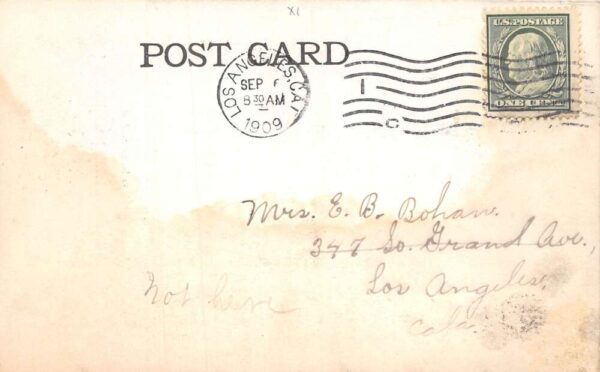 XI
POST CARD
U.S. POSTAGE
ONE CENT
LOS ANGELES, CAL
SEP 6
8 30 AM
1909
1
C
Mrs. E. B. Bohan.
347 So. Grand Ave.,
Los Angeles,
Cala.
Not here